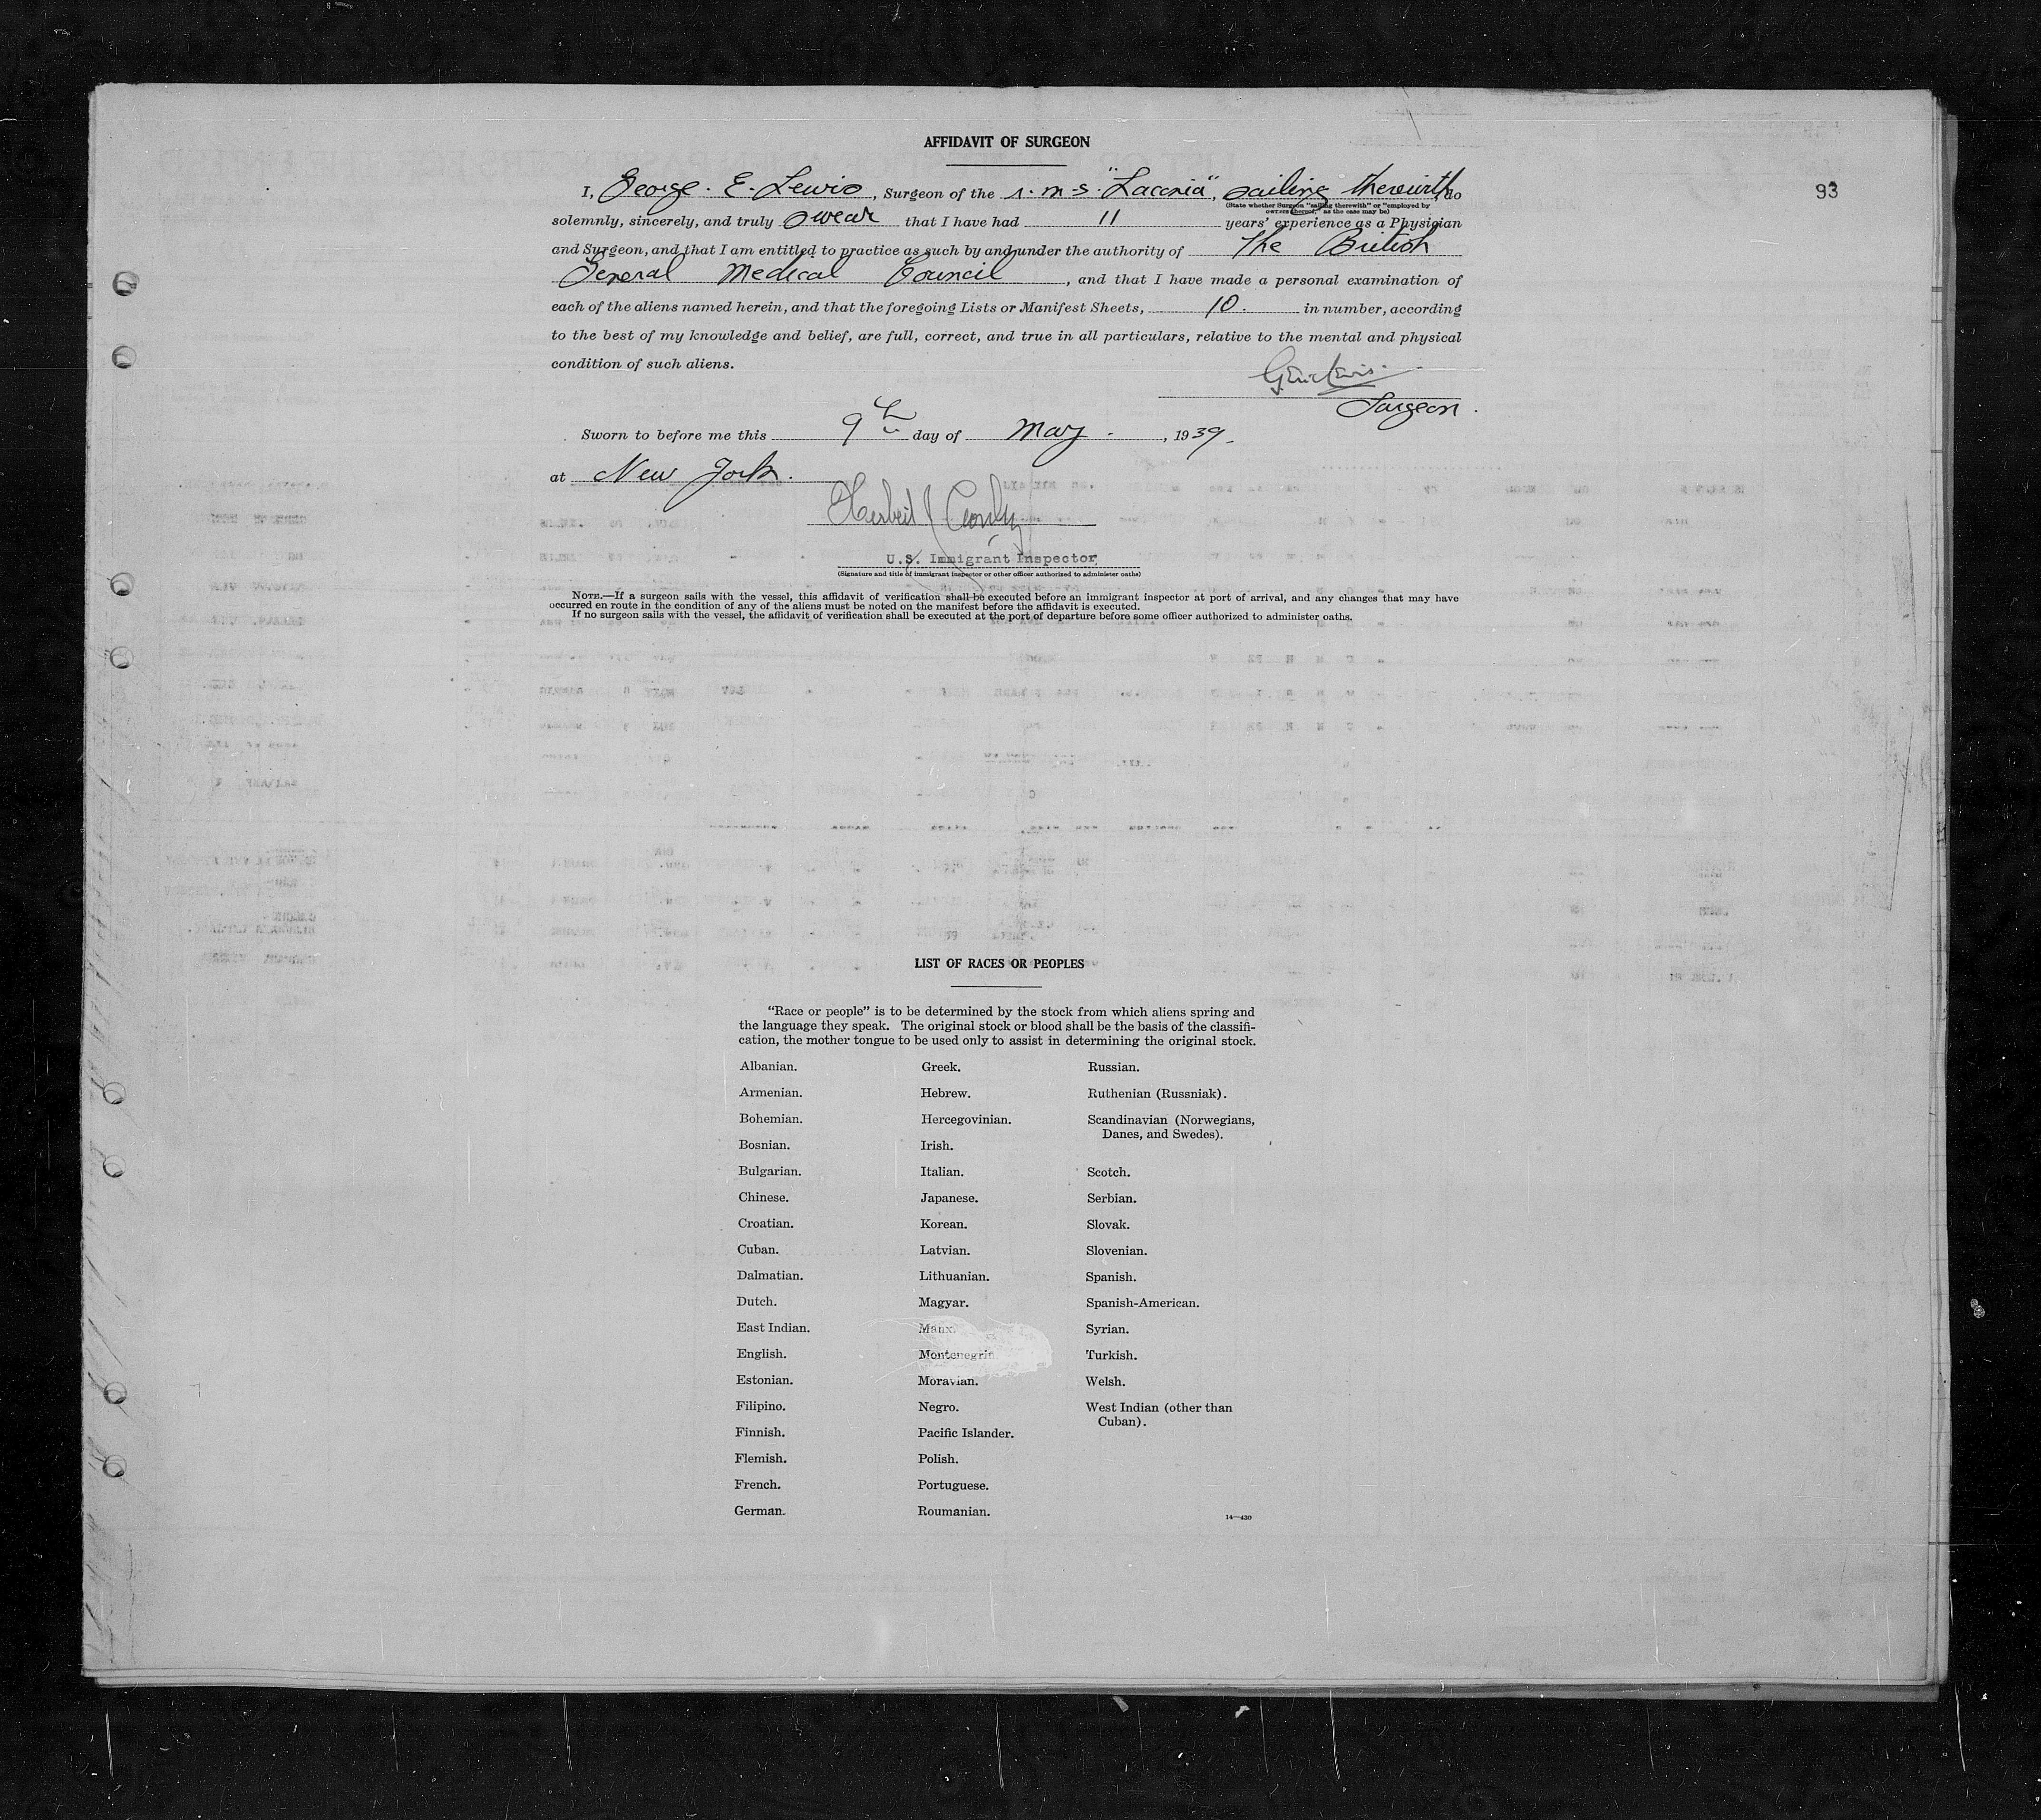 AFFIDAVIT OF SURGEON
93
I, George. E. Lewis, Surgeon of the r.m.s. "Laconia", sailing therewith, do
(State whether Surgeon "sailing therewith" or "employed by
owners thereof," as the case may be)
solemnly, sincerely, and truly swear that I have had 11 years' experience as a Physician
and Surgeon, and that I am entitled to practice as such by and under the authority of The British
General Medical Council, and that I have made a personal examination of
each of the aliens named herein, and that the foregoing Lists or Manifest Sheets, 10. in number, according
to the best of my knowledge and belief, are full, correct, and true in all particulars, relative to the mental and physical
condition of such aliens.
Surgeon.
Sworn to before me this 9th day of May., 1939.
at New York.
Herbert
U.S. Immigrant Inspector
(Signature and title of immigrant inspector or other officer authorized to administer oaths)
NOTE.—If a surgeon sails with the vessel, this affidavit of verification shall be executed before an immigrant inspector at port of arrival, and any changes that may have
occurred en route in the condition of any of the aliens must be noted on the manifest before the affidavit is executed.
If no surgeon sails with the vessel, the affidavit of verification shall be executed at the port of departure before some officer authorized to administer oaths.
LIST OF RACES OR PEOPLES
"Race or people" is to be determined by the stock from which aliens spring and
the language they speak. The original stock or blood shall be the basis of the classifi-
cation, the mother tongue to be used only to assist in determining the original stock.
Albanian.
Armenian.
Bohemian.
Bosnian.
Bulgarian.
Chinese.
Croatian.
Cuban.
Dalmatian.
Dutch.
East Indian.
English.
Estonian.
Filipino.
Finnish.
Flemish.
French.
German.
Greek.
Hebrew.
Hercegovinian.
Irish.
Italian.
Japanese.
Korean.
Latvian.
Lithuanian.
Magyar.
Manx.
Montenegrin
Moravian.
Negro.
Pacific Islander.
Polish.
Portuguese.
Roumanian.
Russian.
Ruthenian (Russniak).
Scandinavian (Norwegians,
Danes, and Swedes).
Scotch.
Serbian.
Slovak.
Slovenian.
Spanish.
Spanish-American.
Syrian.
Turkish.
Welsh.
West Indian (other than
Cuban).
14—430